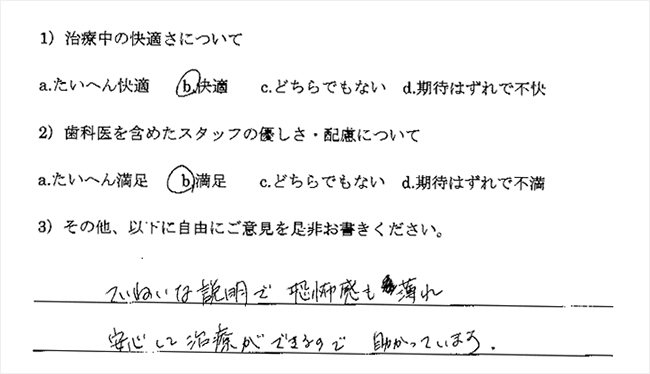 1）治療中の快適さについて
a.たいへん快適　b.快適　c.どちらでもない　d.期待はずれで不快
2）歯科医を含めたスタッフの優しさ・配慮について
a.たいへん満足　b.満足　c.どちらでもない　d.期待はずれで不満
3）その他、以下に自由にご意見を是非お書きください。
ていねいな説明で　恐怖感も薄れ
安心して治療ができるので　助かっています.